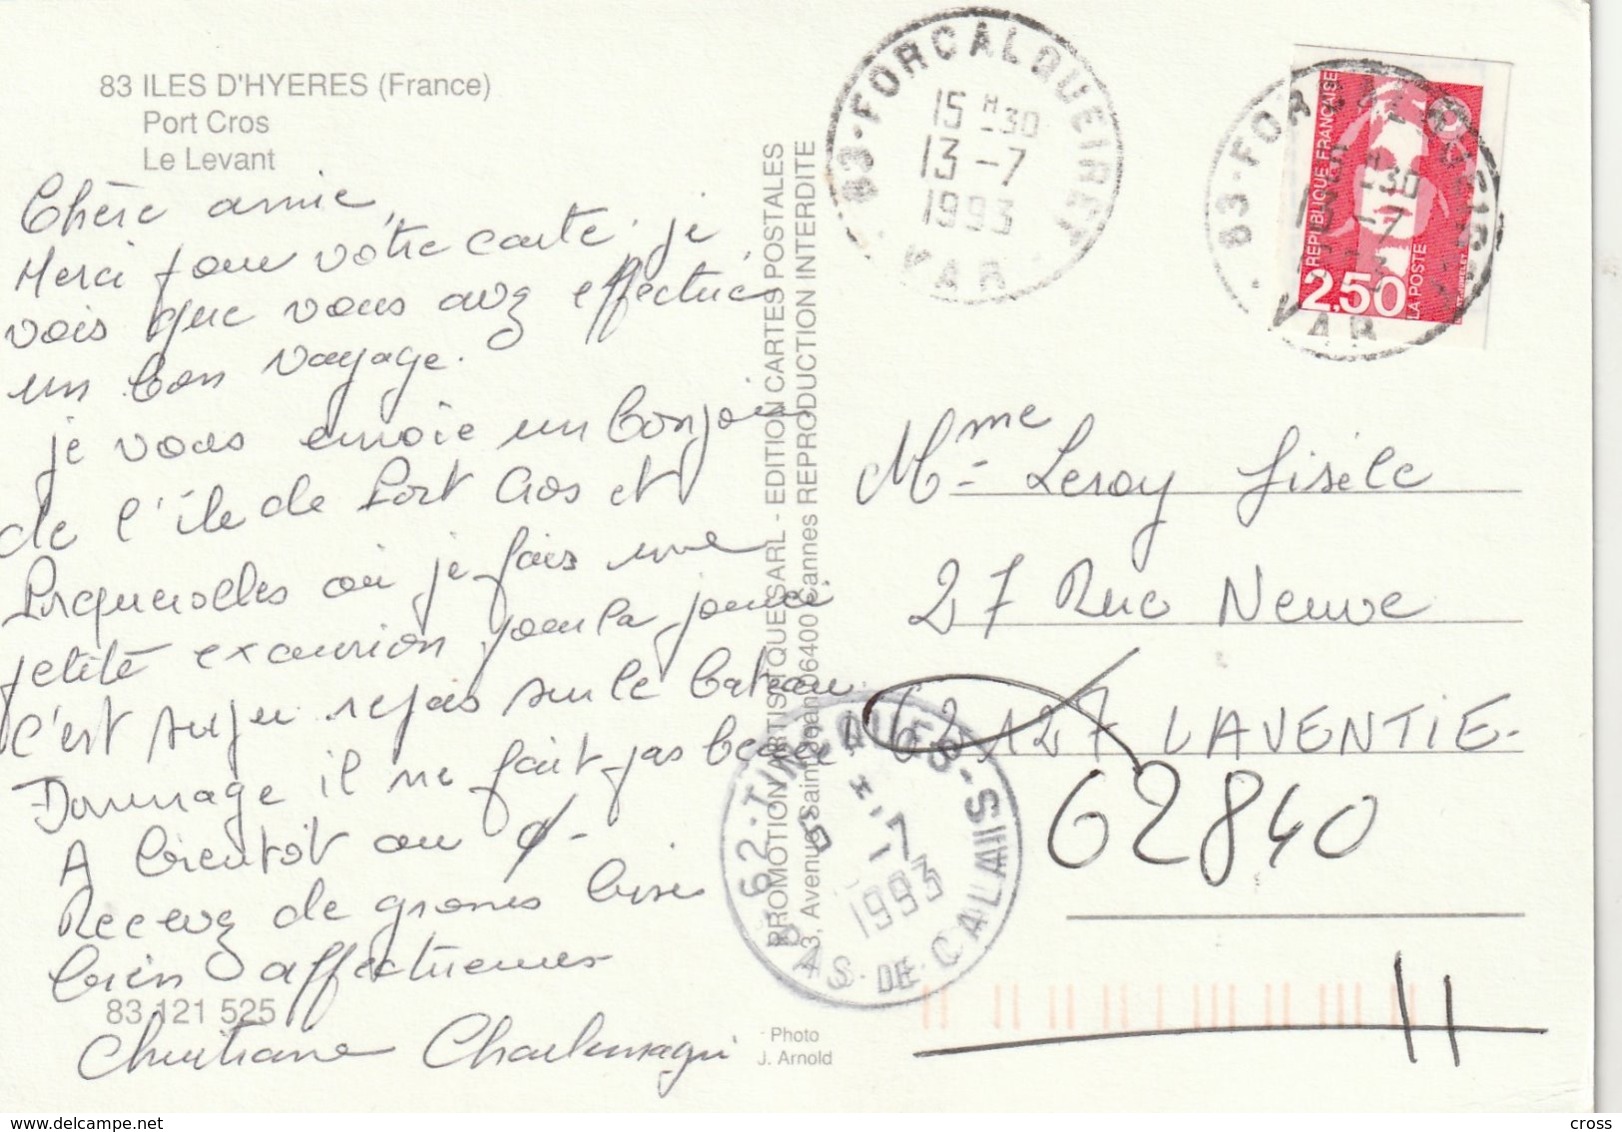 83 ILES D'HYERES (France)
Port Cros
Le Levant
Chère amie,
Merci pour votre carte. je
vois que vous avez effectué
un bon voyage.
je vous envoie un bonjour
de l'île de Port Cros et
Porquerolles où je fais une
petite excursion pour la journée
C'est super repas sur le bateau.
Dommage il ne fait pas beau!
A bientôt au
Recevez de grosses bises
bien affectueuses
83 121 525
Christiane
PROMOTION ARTISTIQUE SARL - EDITION CARTES POSTALES
3, Avenue Saint Jean 06400 Cannes REPRODUCTION INTERDITE
Photo
J. Arnold
83-FORCALQUEIRET
15 H 30
13-7
1993
VAR
83-FORCALQUEIRET
15 H 30
13-7
1993
VAR
REPUBLIQUE FRANÇAISE
2,50
LA POSTE
Mme Leroy Gisèle
27 Rue Neuve
62127 LAVENTIE
62840
62-TINCQUES
-7
1993
PAS-DE-CALAIS
cross
www.delcampe.net